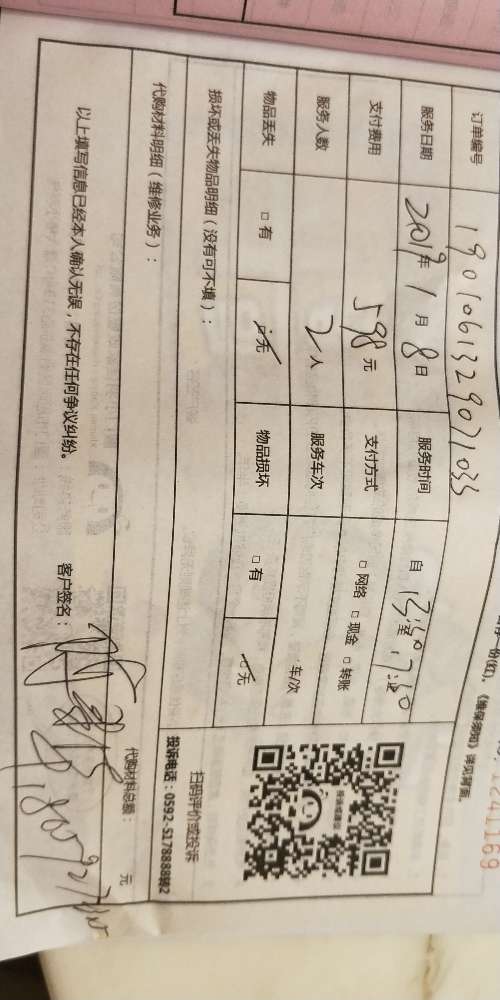 《维保须知》详见背面。
订单编号 1901061329071035
服务日期 2019年 1月 8日 服务时间 自 13:50 至 17:50
支付费用 598 元 支付方式 □ 网络 □ 现金 □ 转账
服务人数 2 人 服务车次 车/次
物品丢失 □ 有 □ 无 物品损坏 □ 有 □ 无
损坏或丢失物品明细（没有可不填）：
扫码评价或投诉
投诉电话：0592-5178888转2
代购材料明细（维修业务）：
代购材料总额： 元
以上填写信息已经本人确认无误，不存在任何争议纠纷。 客户签名：